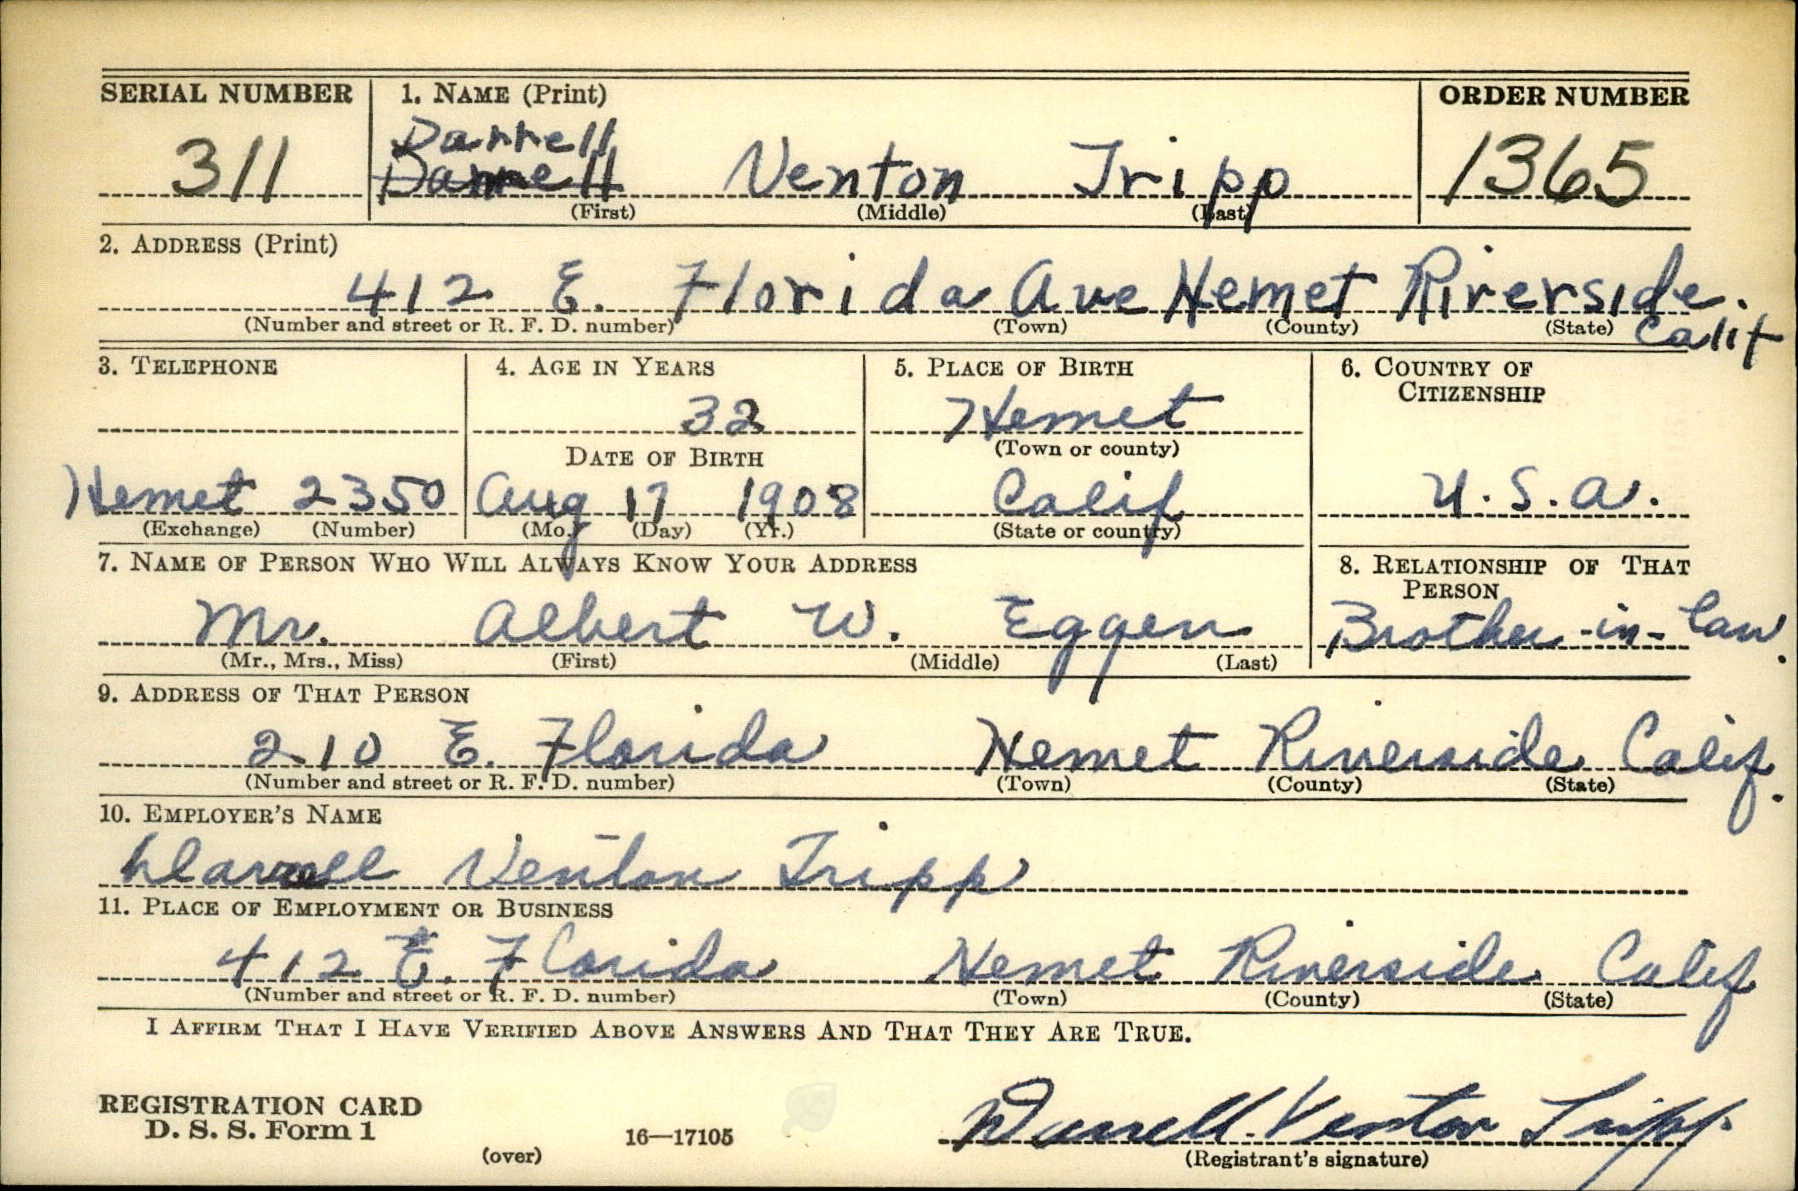 SERIAL NUMBER 1. NAME (Print) ORDER NUMBER
Darrell
311 Darrell Venton Tripp 1365
(First) (Middle) (Last)
2. ADDRESS (Print)
412 E. Florida Ave Hemet Riverside.
(Number and street or R. F. D. number) (Town) (County) (State) Calif
3. TELEPHONE 4. AGE IN YEARS 5. PLACE OF BIRTH 6. COUNTRY OF
CITIZENSHIP
32 Hemet
DATE OF BIRTH (Town or county)
Hemet 2350 Aug 17 1908 Calif U.S.A.
(Exchange) (Number) (Mo.) (Day) (Yr.) (State or country)
7. NAME OF PERSON WHO WILL ALWAYS KNOW YOUR ADDRESS 8. RELATIONSHIP OF THAT
PERSON
Mr. Albert W. Eggen Brother-in-law.
(Mr., Mrs., Miss) (First) (Middle) (Last)
9. ADDRESS OF THAT PERSON
210 E. Florida Hemet Riverside Calif.
(Number and street or R. F. D. number) (Town) (County) (State)
10. EMPLOYER'S NAME
Darrell Venton Tripp
11. PLACE OF EMPLOYMENT OR BUSINESS
412 E. Florida Hemet Riverside Calif
(Number and street or R. F. D. number) (Town) (County) (State)
I AFFIRM THAT I HAVE VERIFIED ABOVE ANSWERS AND THAT THEY ARE TRUE.
REGISTRATION CARD
D. S. S. Form 1 16—17105 Darrell Venton Tripp
(over) (Registrant's signature)